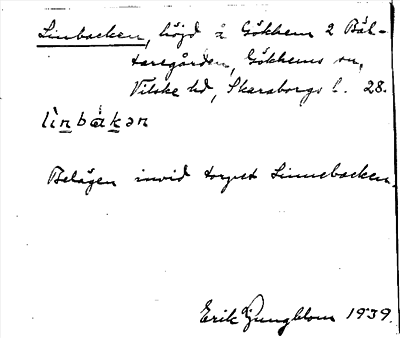 Linbacken, höjd å Gökhem 2 Bäl-
taregården, Gökhems sn,
Vilske hd, Skaraborgs l. 28.
lìn bàkən
Belägen invid torpet Linnebacken.
Erik Ljungblom 1939.